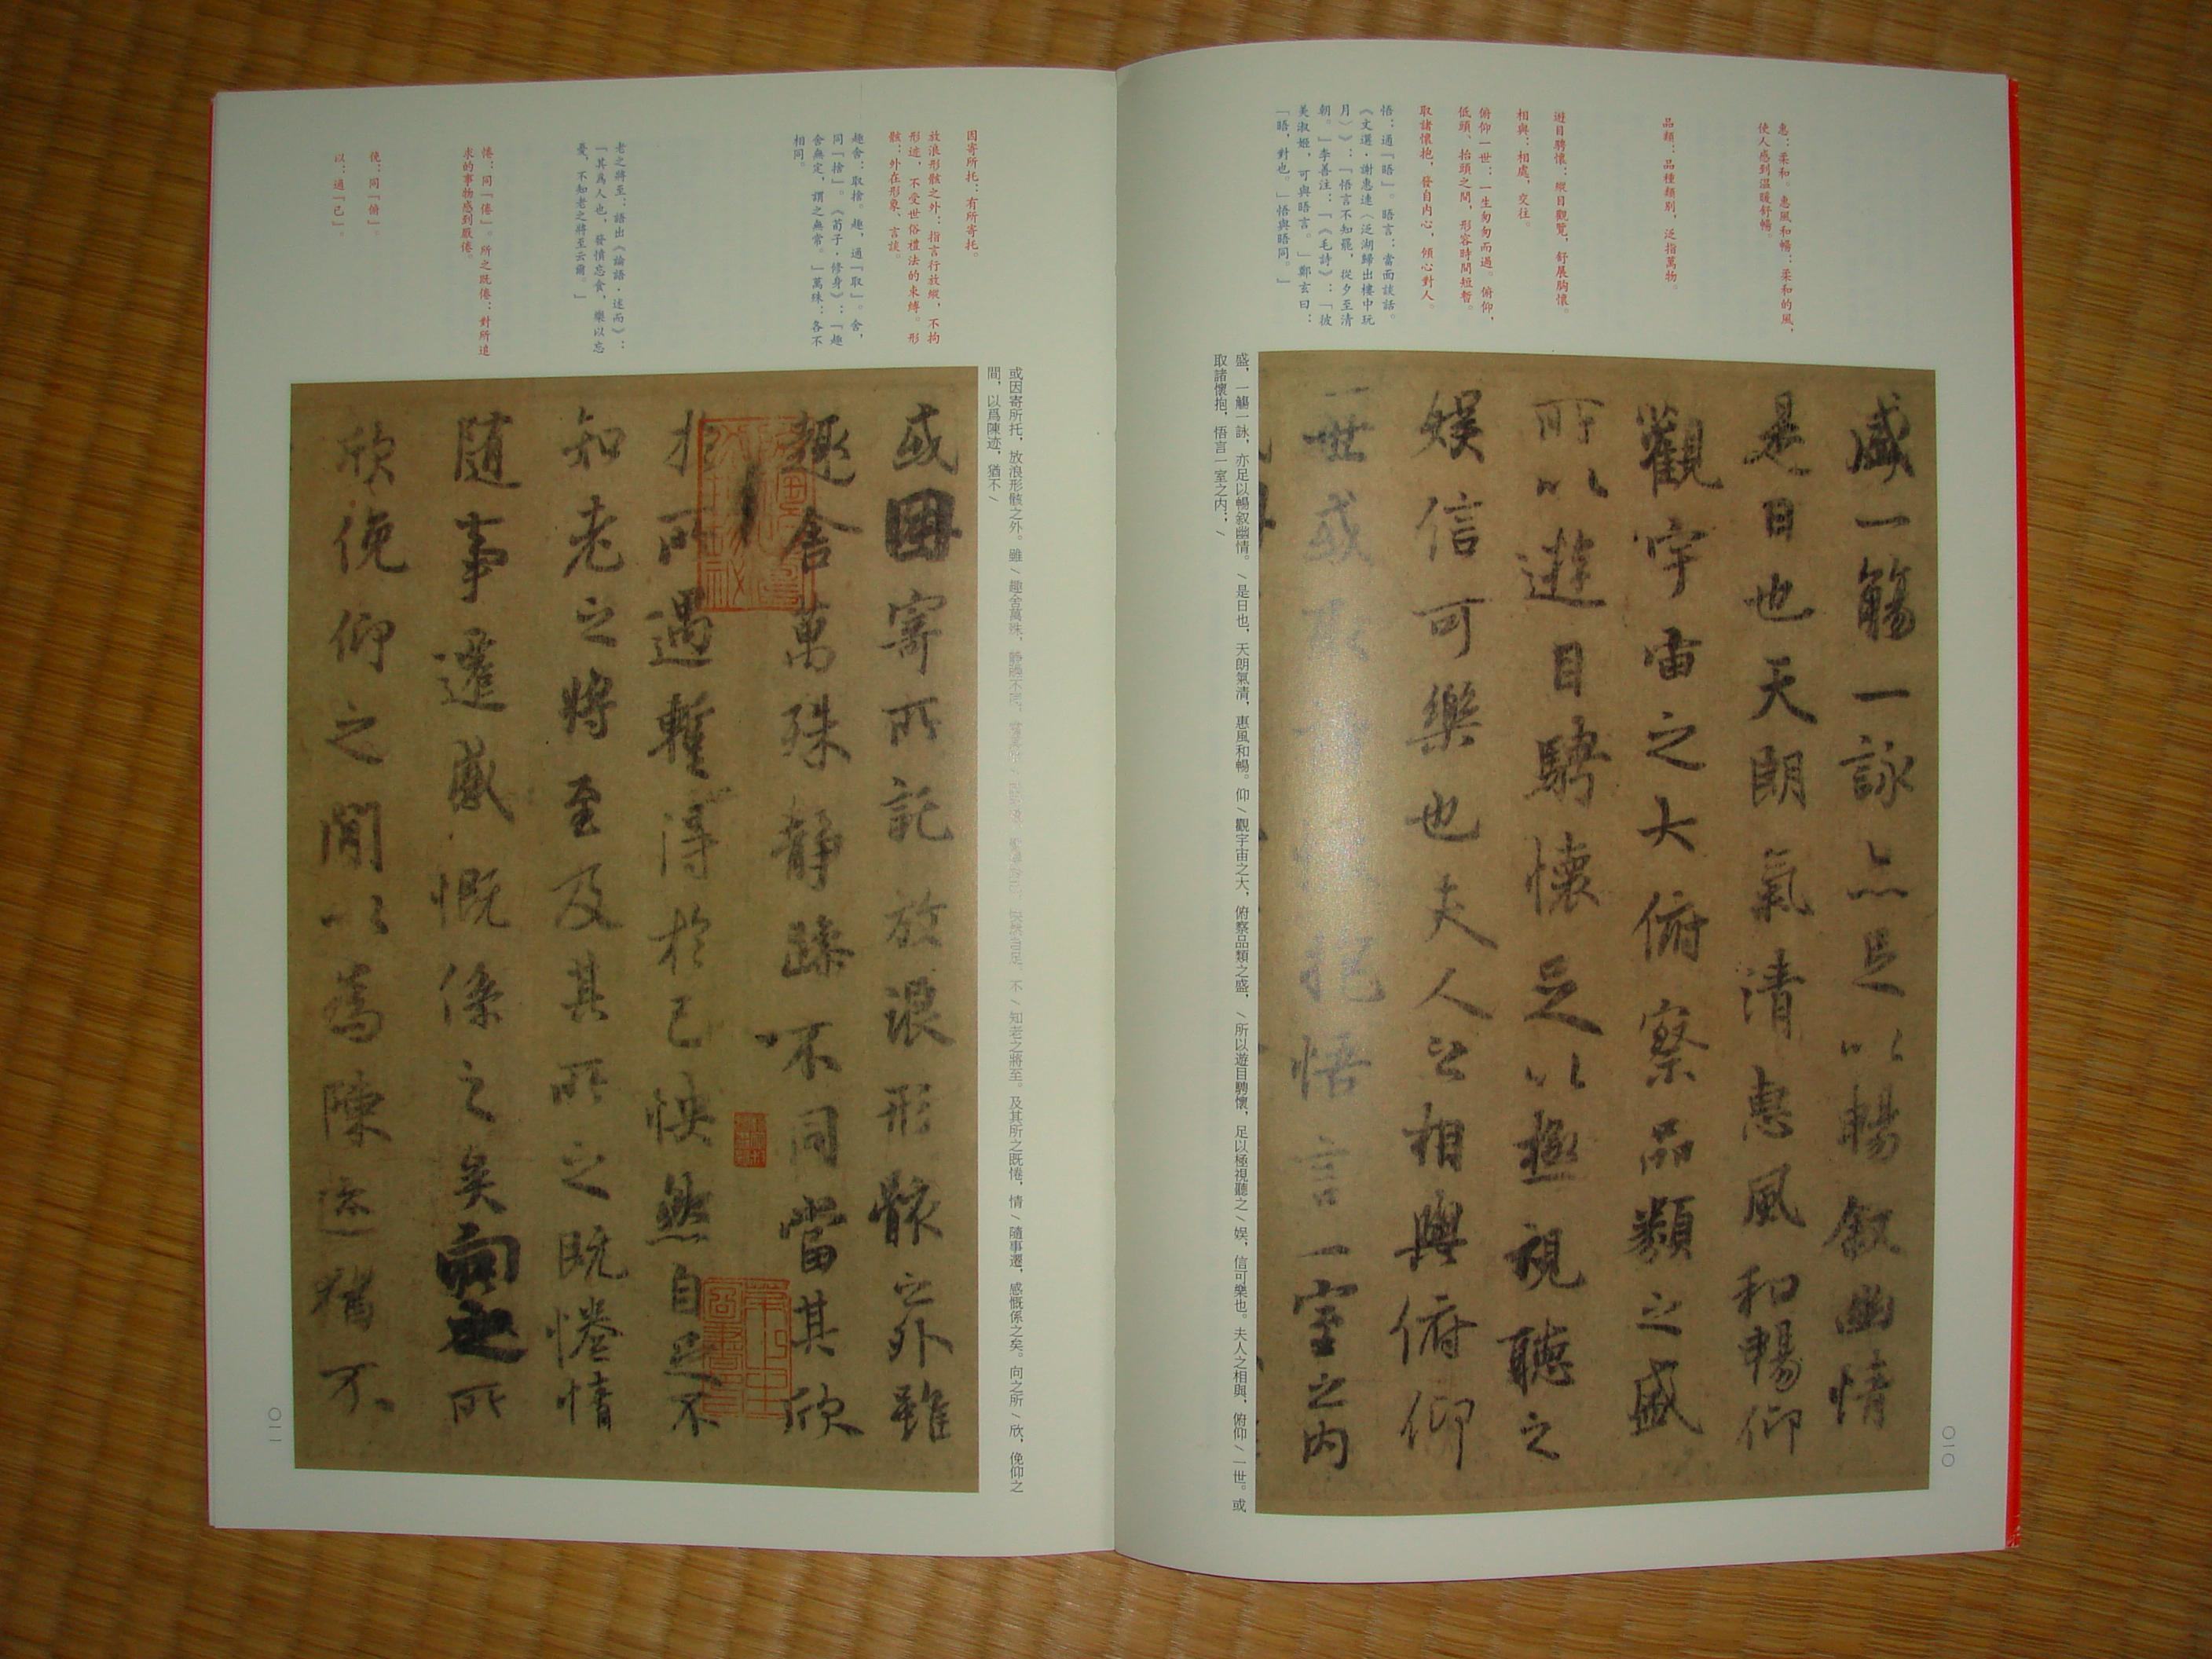 惠：柔和。惠風和暢：柔和的風，
使人感到温暖舒暢。
品類：品種類别，泛指萬物。
遊目騁懷：縱目觀覽，舒展胸懷。
相與：相處，交往。
俯仰一世：一生匆匆而過。俯仰，
低頭、抬頭之間，形容時間短暫。
取諸懷抱，發自内心，傾心對人。
悟：通「晤」。晤言：當面談話。
《文選·謝惠連〈泛湖歸出樓中玩
月〉》：「悟言不知罷，從夕至清
朝。」李善注：「《毛詩》：「彼
美淑姬，可與晤言。」鄭玄曰：
「晤，對也。」悟與晤同。」
盛一觴一詠亦足以暢叙幽情
是日也天朗氣清惠風和暢仰
觀宇宙之大俯察品類之盛
所以遊目騁懷足以極視聽之
娱信可樂也夫人之相與俯仰
一世或取諸懷抱悟言一室之内
盛，一觴一詠，亦足以暢叙幽情。/是日也，天朗氣清，惠風和暢。仰/觀宇宙之大，俯察品類之盛，/所以遊目騁懷，足以極視聽之/娱，信可樂也。夫人之相與，俯仰/一世。或
取諸懷抱，悟言一室之内；/
〇一〇
因寄所托：有所寄托。
放浪形骸之外：指言行放縱，不拘
形迹，不受世俗禮法的束縛。形
骸：外在形象、言談。
趣舍：取捨。趣，通「取」。舍，
同「捨」。《荀子·修身》：「趣
舍無定，謂之無常。」萬殊：各不
相同。
老之將至：語出《論語·述而》：
「其爲人也，發憤忘食，樂以忘
憂，不知老之將至云爾。」
惓：同「倦」。所之既惓：對所追
求的事物感到厭倦。
俛：同「俯」。
以：通「已」。
或因寄所托，放浪形骸之外。雖/趣舍萬殊，静躁不同，當其欣/ 怏然自足，不/知老之將至。及其所之既惓，情/隨事遷，感慨係之矣。向之所/欣，俛仰之
間，以爲陳迹，猶不/
或因寄所託放浪形骸之外雖
趣舍萬殊静躁不同當其欣
於所遇暫得於己怏然自足不
知老之將至及其所之既惓情
随事遷感慨係之矣向之所
欣俛仰之閒以爲陳迹猶不
〇一一